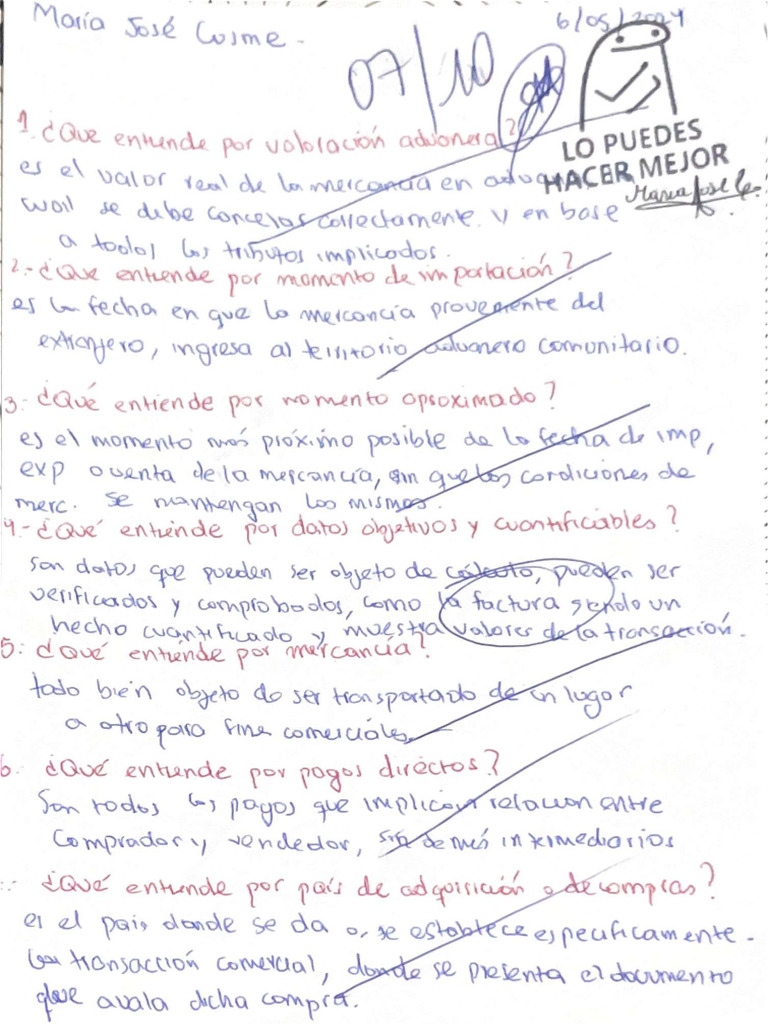 María José Cosme -
6/05/2024
07/10
LO PUEDES
HACER MEJOR
María José C.
1. ¿Que entiende por valoración aduanera?
es el valor real de la mercancía en aduana
cual se debe cancelar correctamente y en base
a todos los tributos implicados.
2.- ¿Que entiende por momento de importación?
es la fecha en que la mercancía proveniente del
extranjero, ingresa al territorio aduanero comunitario.
3.- ¿Qué entiende por momento aproximado?
es el momento más próximo posible de la fecha de imp,
exp o venta de la mercancía, sin que las condiciones de
merc. se mantengan los mismos.
4.- ¿Qué entiende por datos objetivos y cuantificiables?
Son datos que pueden ser objeto de pueden ser
verificados y comprobados, como la factura siendo un
hecho cuantificado y muestra valores de la transacción.
5: ¿Qué entiende por mercancía?
todo bien objeto de ser transportado de un lugar
a otro para fine comerciales
6. ¿Qué entiende por pagos directos?
Son todos los pagos que implican relacion entre
comprador y vendedor, sin demás intermediarios
¿Qué entiende por país de adquisición o de compras?
es el pais donde se da o, se establece especificamente -
la transacción comercial, donde se presenta el documento
que avala dicha compra.